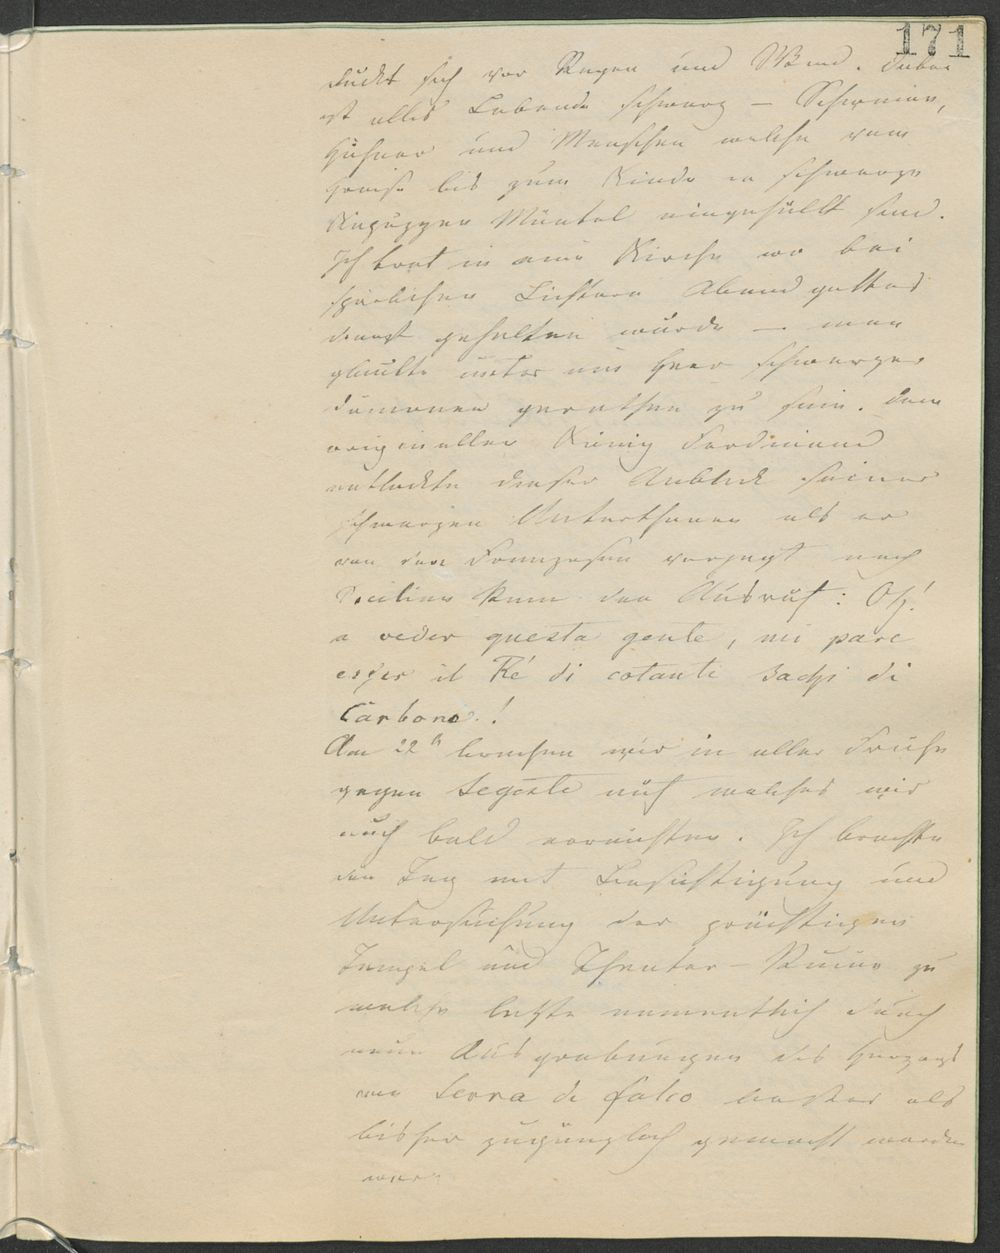 171
duckt sich vor Regen und Wind. Dabei
ist alles Lebende schwarz — Schweine,
Hühner und Menschen welche vom
Greise bis zum Kinde in schwarze
Kapuzzen Mäntel eingehüllt sind.
Ich trat in eine Kirche wo bei
spärlichen Lichtern Abend gottes
dienst gehalten wurde — man
glaubte unter ein Heer schwarzer
Dämonen gerathen zu sein. Dem
originellen König Ferdinand
entlockte dieser Anblick seiner
schwarzen Unterthanen als er
von den Franzosen verjagt nach
Sicilien kam den Ausruf: Oh!
a veder questa gente, mi pare
esser il Ré di cotanti sachi di
Carbone.!
Am 22ten brachen wir in aller Frühe
gegen Segeste auf welches wir
auch bald erreichten. Ich brachte
den Tag mit Besichtigung und
Untersuchung der prächtigen
Tempel und Theater-Ruine zu
welche letzte namentlich durch
neue Ausgrabungen des Herzogs
von Serra di falco besser als
bisher zugänglich gemacht worden
war.